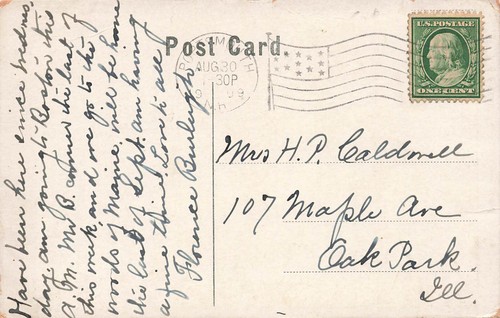 Post Card.
PORTSMOUTH
AUG 30
30P
N.H.
U.S. POSTAGE
ONE CENT
Mrs H. P. Caldwell
107 Maple Ave
Oak Park.
Ill.
Have been here since Wednes
day. am going to Boston this
a.m. Mr B. comes the last of
this week and we go to the
woods of Maine, will be home
the last of Sept. am having
a fine time Love to all
Florence